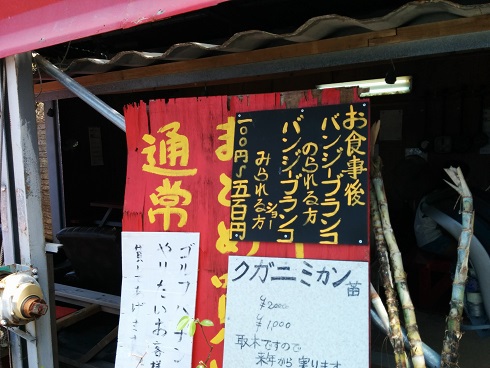 お食事後
バンジーブランコ
のられる方
バンジーブランコ
みられる方
ショー
一〇〇円〜五百円
通常
クガニミカン苗
¥2000
¥1,000
取木ですので
来年から実ります
やりたいお客様